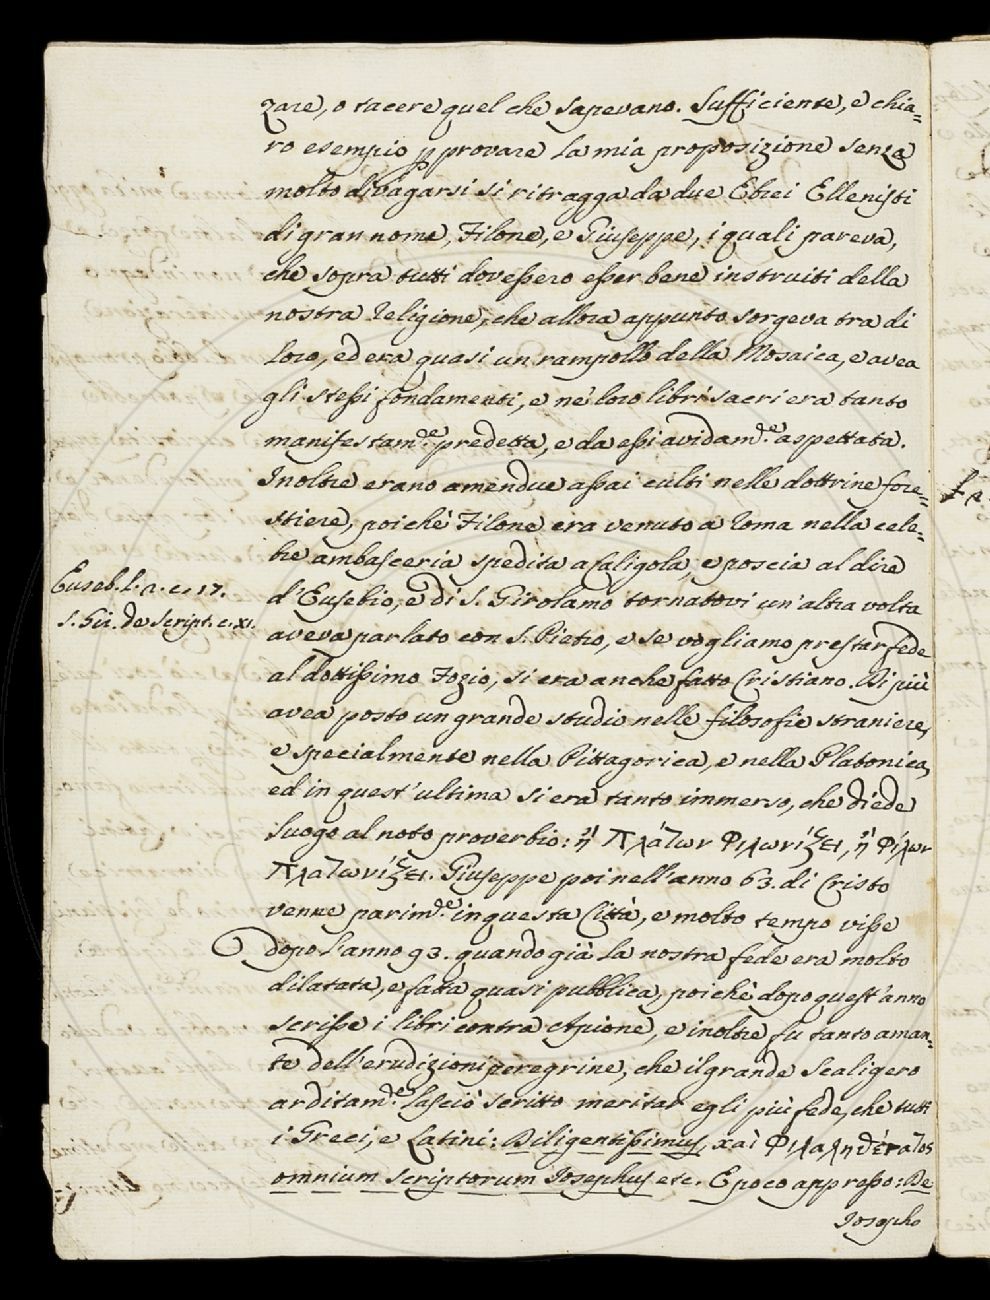 zare, o tacere quel che sapevano. Sufficiente, e chia=
ro esempio p provare la mia proposizione senza
molto divagarsi si ritragga da due Ebrei Ellenisti
di gran nome, Filone, e Giuseppe, i quali pareva,
che sopra tutti dovessero esser bene instruiti della
nostra Religione, che allora appunto sorgeva tra di
loro, ed era quasi un rampollo della Mosaica, e avea
gli stessi fondamenti, e ne' loro libri sacri era tanto
manifestam.te predetta, e da essi avidam.te aspettata.
Inoltre erano amendue assai culti nelle dottrine fore=
stiere, poichè Filone era venuto a Roma nella cele=
bre ambasceria spedita a Caligola, e poscia al dire
Euseb. l. 2. c. 17.
d'Eusebio, e di S. Girolamo tornatovi un'altra volta
S. Gir. de Script. c. XI.
aveva parlato con S. Pietro, e se vogliamo prestar fede
al dottissimo Fozio, si era anche fatto Cristiano. Di più
avea posto un grande studio nelle filosofie straniere,
e specialmente nella Pittagorica, e nella Platonica,
ed in quest'ultima si era tanto immerso, che diede
luogo al noto proverbio: ἢ Πλάτων Φιλωνίζει, ἢ Φίλων
Πλατωνίζει. Giuseppe poi nell'anno 63. di Cristo
venne parim.te in questa Città, e molto tempo visse
dopo l'anno 93. quando già la nostra fede era molto
dilatata, e fatta quasi pubblica, poichè dopo quest'anno
scrisse i libri contra Apione, e inoltre fu tanto aman=
te dell'erudizioni peregrine, che il grande Scaligero
arditam.te lasciò scritto meritar egli più fede, che tutti
i Greci, e Latini: Diligentissimus, καὶ Φιλαληθέστατος
omnium scriptorum Iosephus etc. E poco appresso: De
Iosepho